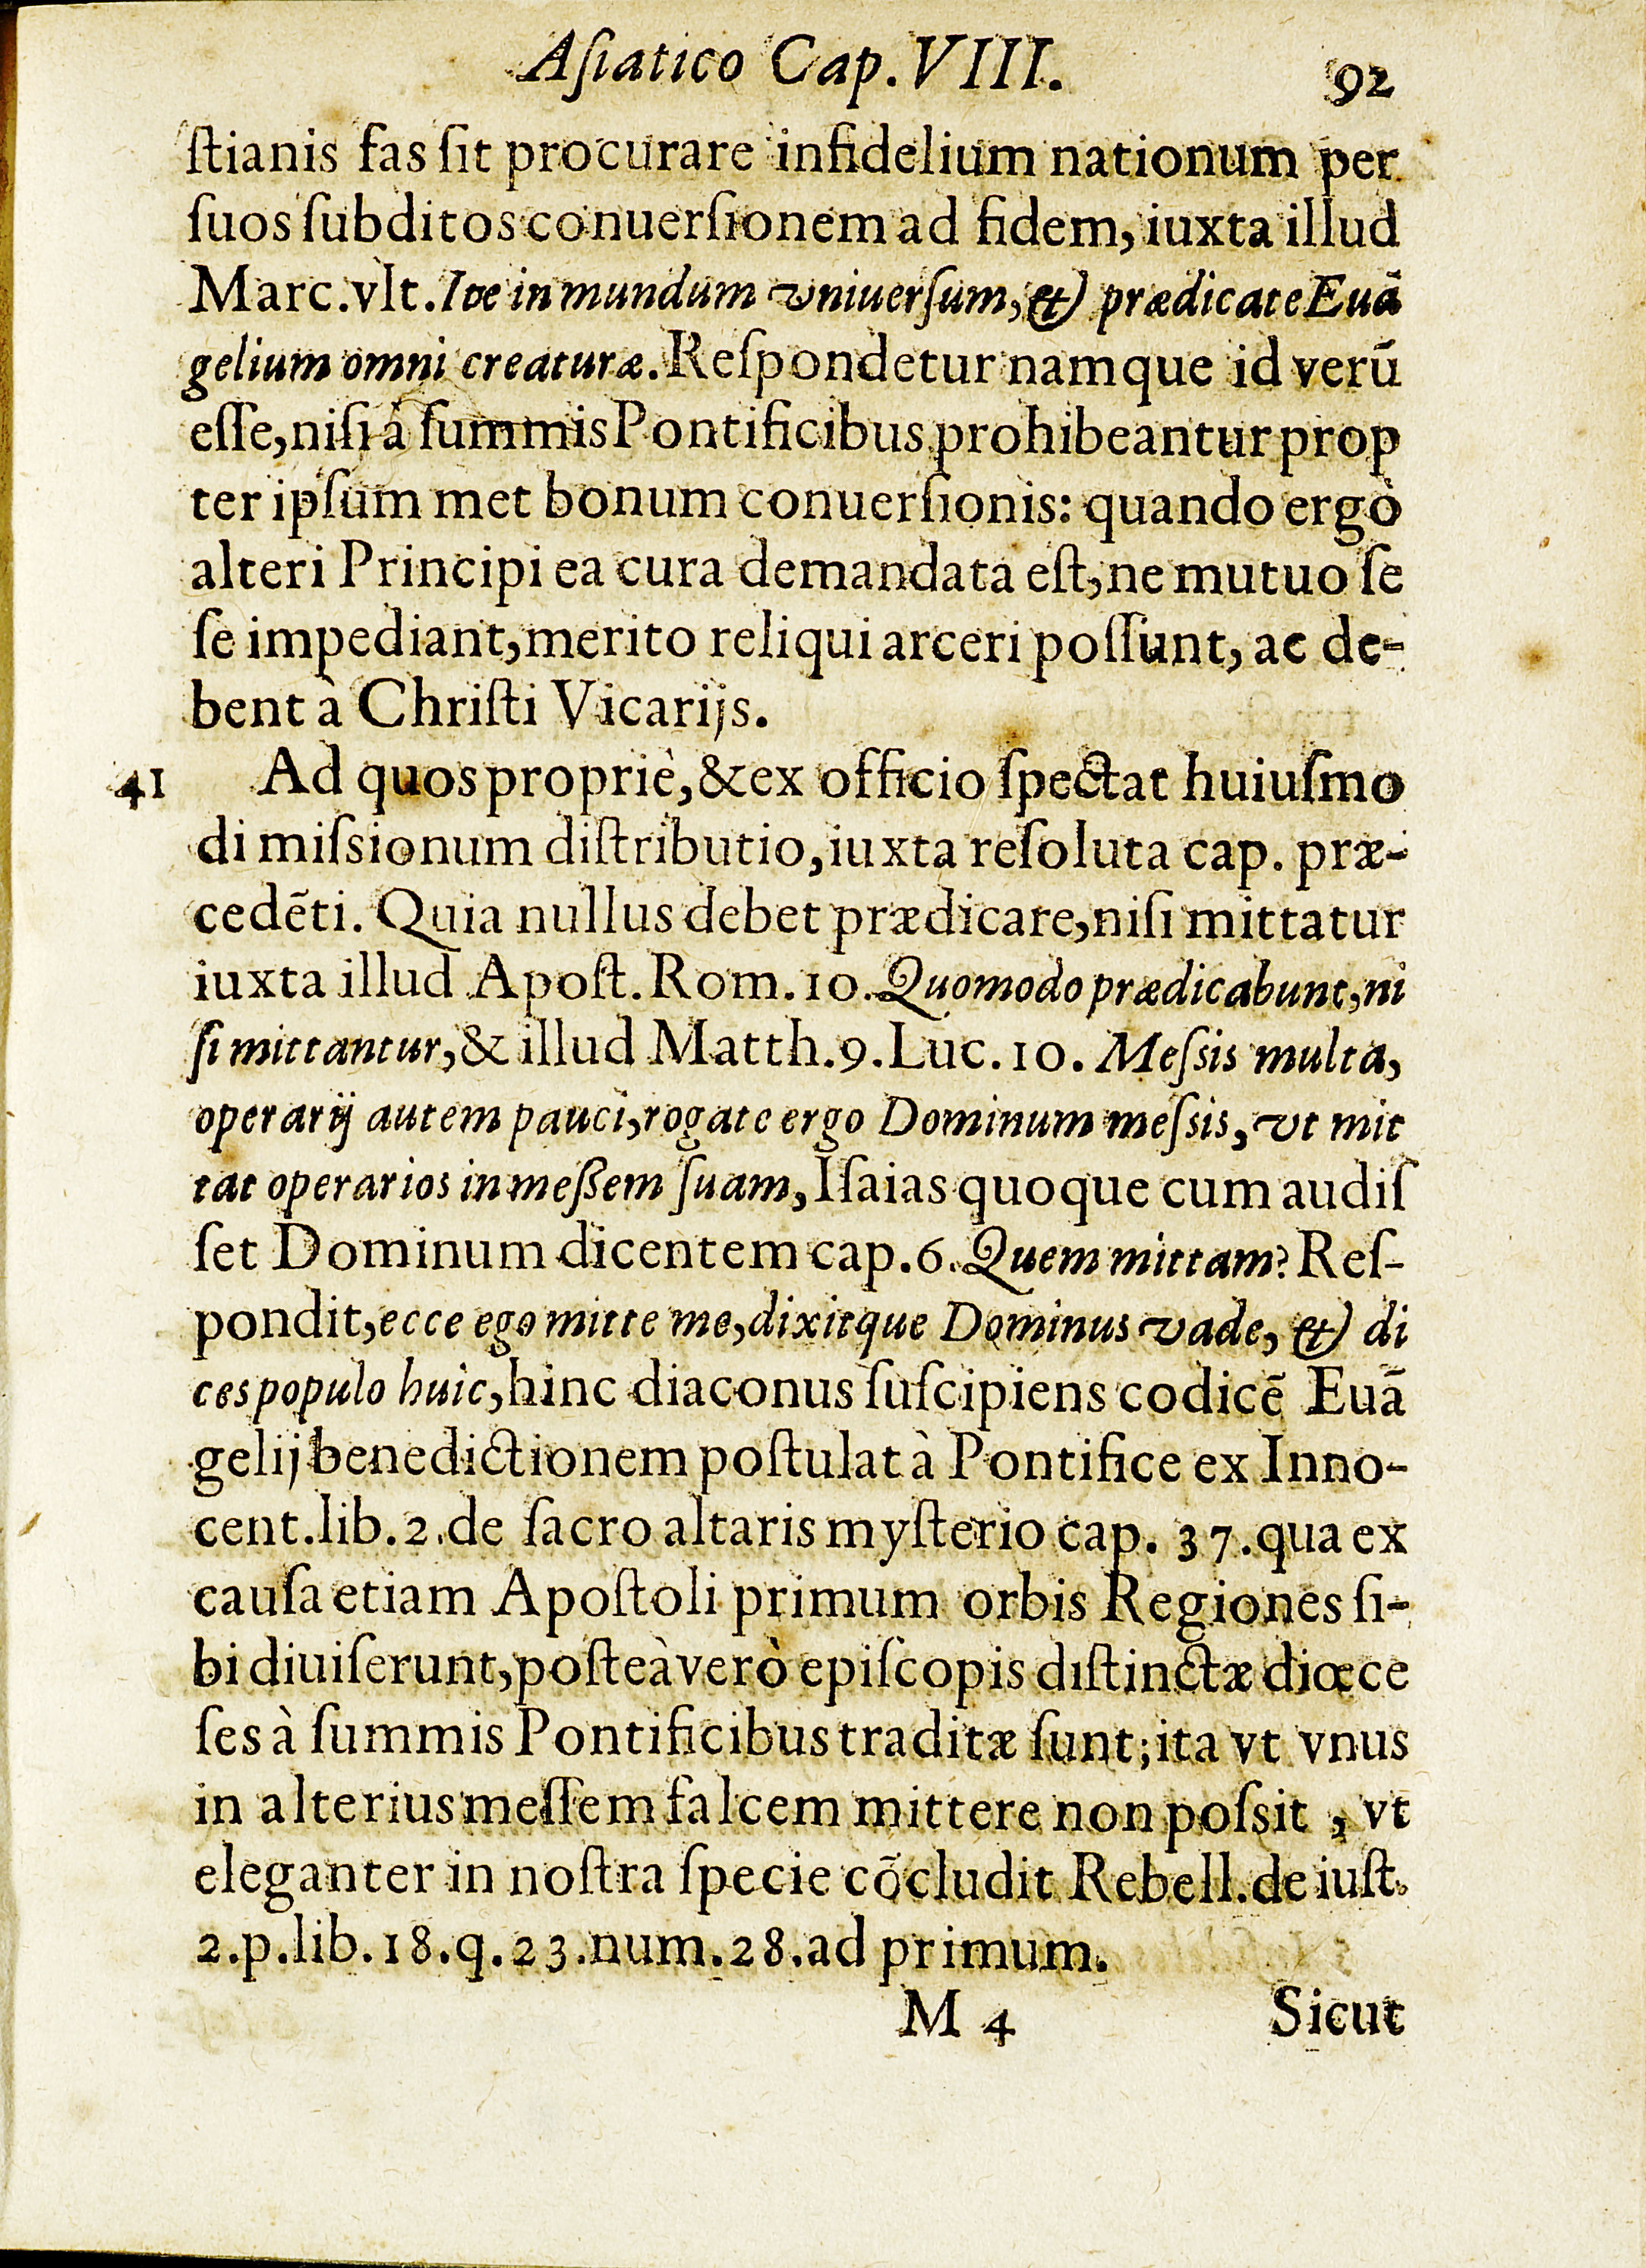 Aſiatico Cap. VIII. 92
ſtianis fas ſit procurare infidelium nationum per
ſuos ſubditos conuerſionem ad fidem, iuxta illud
Marc. vlt. Ite in mundum vniuerſum, & prædicate Euã
gelium omni creaturæ. Reſpondetur namque id verũ
eſſe, niſi à ſummis Pontificibus prohibeantur prop
ter ipſum met bonum conuerſionis: quando ergò
alteri Principi ea cura demandata eſt, ne mutuo ſe
ſe impediant, merito reliqui arceri poſſunt, ac de-
bent à Chriſti Vicarijs.
41 Ad quos propriè, & ex officio ſpectat huiuſmo
di miſsionum diſtributio, iuxta reſoluta cap. præ-
cedẽti. Quia nullus debet prædicare, niſi mittatur
iuxta illud Apoſt. Rom. 10. Quomodo prædicabunt, ni
ſi mittantur, & illud Matth. 9. Luc. 10. Meſsis multa,
operarij autem pauci, rogate ergo Dominum meſsis, vt mit
tat operarios in meßem ſuam, Iſaias quoque cum audiſ
ſet Dominum dicentem cap. 6. Quem mittam? Reſ-
pondit, ecce ego mitte me, dixitque Dominus vade, & di
ces populo huic, hinc diaconus ſuſcipiens codicẽ Euã
gelij benedictionem poſtulat à Pontifice ex Inno-
cent. lib. 2. de ſacro altaris myſterio cap. 37. qua ex
cauſa etiam Apoſtoli primum orbis Regiones ſi-
bi diuiſerunt, poſteà verò epiſcopis diſtinctæ diœce
ſes à ſummis Pontificibus traditæ ſunt; ita vt vnus
in alterius meſſem falcem mittere non poſsit, vt
eleganter in noſtra ſpecie cõcludit Rebell. de iuſt.
2. p. lib. 18. q. 23. num. 28. ad primum.
M 4 Sicut